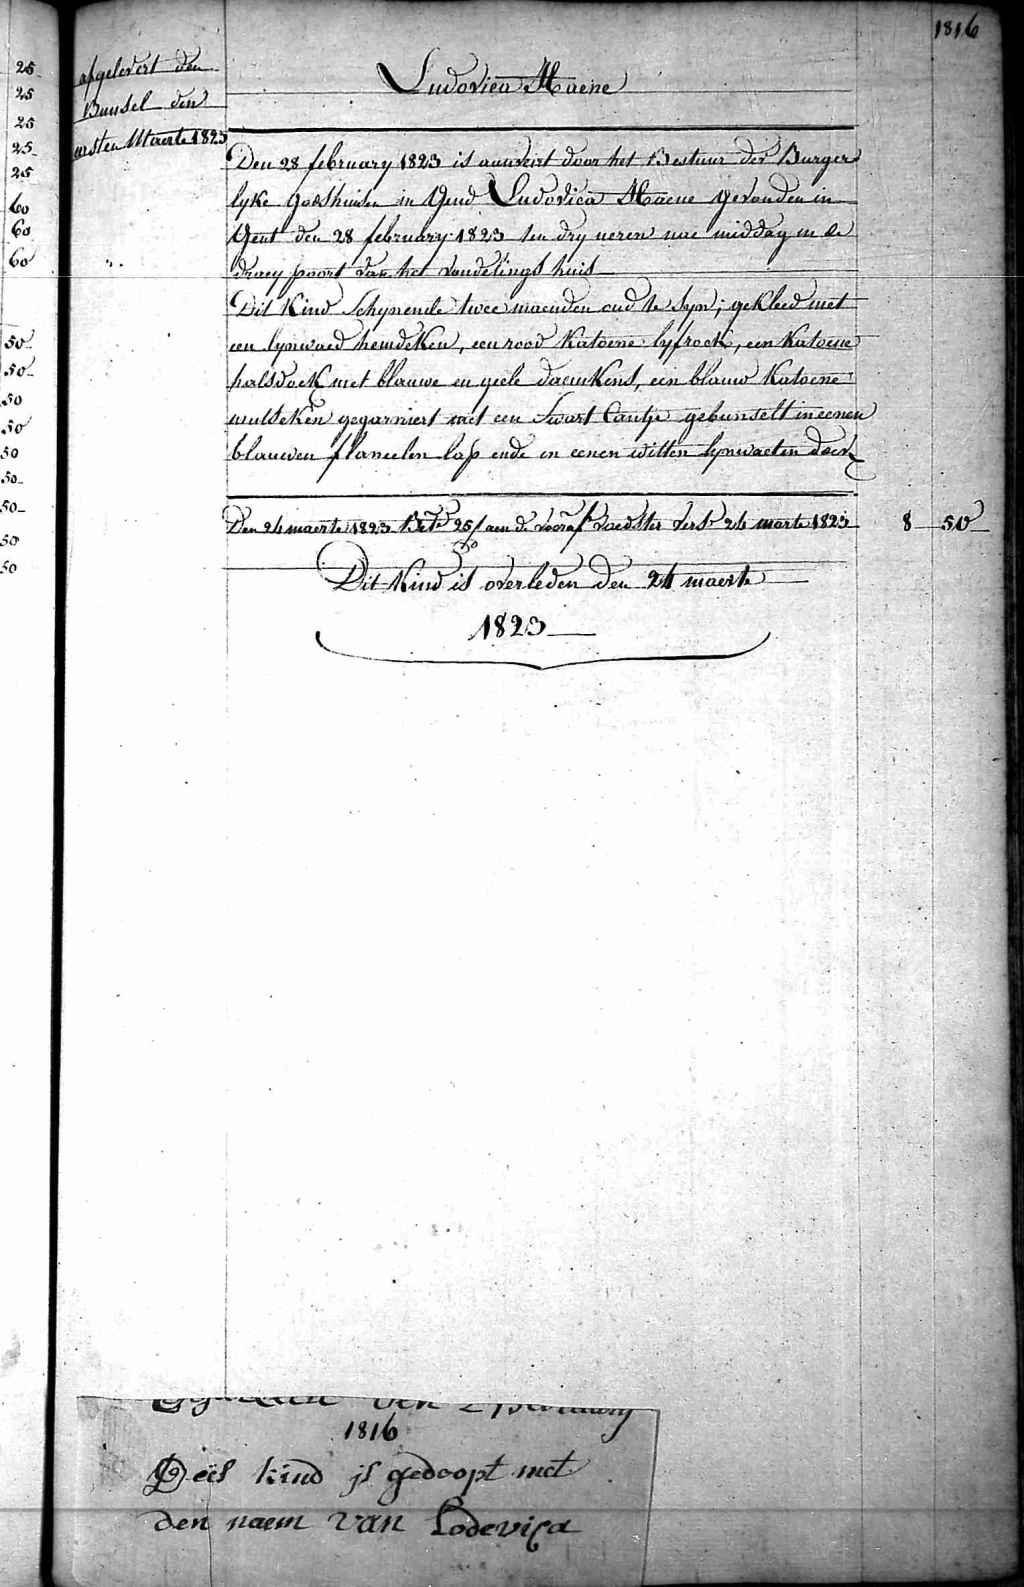 1816
25
25
25
25
25
60
60
60
50
50
50
50
50
50
50
50
50
afgelevert den
Bunsel den
eersten Maerte 1823
Ludovica Haene
Den 28 february 1823 is anveirt door het Bestuur der Burger
lyke godshuisen in Gend Ludovica Haene gevonden in
Gent den 28 february 1823 ten dry ueren nae middag in de
draey poort van het vondelings huis
Dit Kind Schynende twee maenden oud te Syn; gekleed met
een lynwaed hemdeken, een rood Katoene lyfrock, een Katoene
halsdoek met blauwe en geele daemkens, een blauw Katoene
mutseken gegarniert met een Swart Cantje gebunselt in eenen
blauwen flanelen lap ende in eenen witten lynwaeten doek
Den 24 maerte 1823 aen de 24 marte 1823 8 50
Dit Kind is overleden den 24 maerte
1823
1816
Dees kind is gedoopt met
den naem van Lodevica